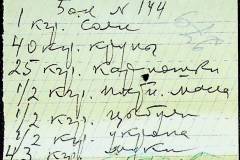 Зал N 144
1 кг. соли
40 кг. крупы
25 кг. картошки
1/2 кг. масла
1/2 кг. цыбули
1/2 кг. укропа